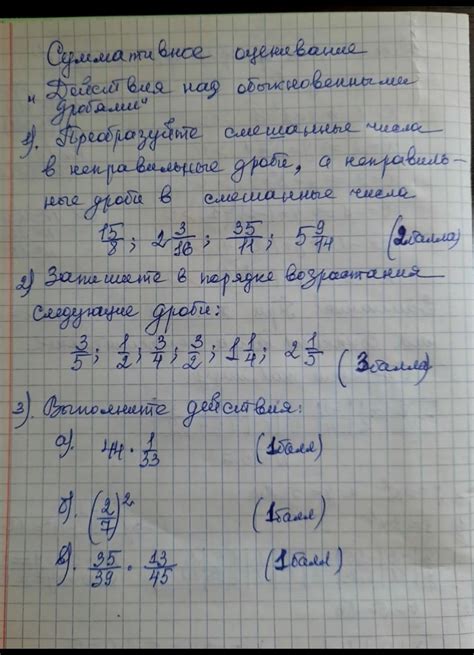 Суммативное оценивание
„Действия над обыкновенными
дробями"
1). Преобразуйте смешанные числа
в неправильные дроби, а неправиль-
ные дроби в смешанные числа
15/8; 2 3/16; 35/11; 5 9/14 (2балла)
2) Запишите в порядке возрастания
следующие дроби:
3/5; 1/2; 3/4; 3/2; 1 1/4; 2 1/5 (3балла)
3). Выполните действия:
а). 44 · 1/33 (1балл)
б). (2/7)² (1балл)
в). 35/39 · 13/45 (1балл)